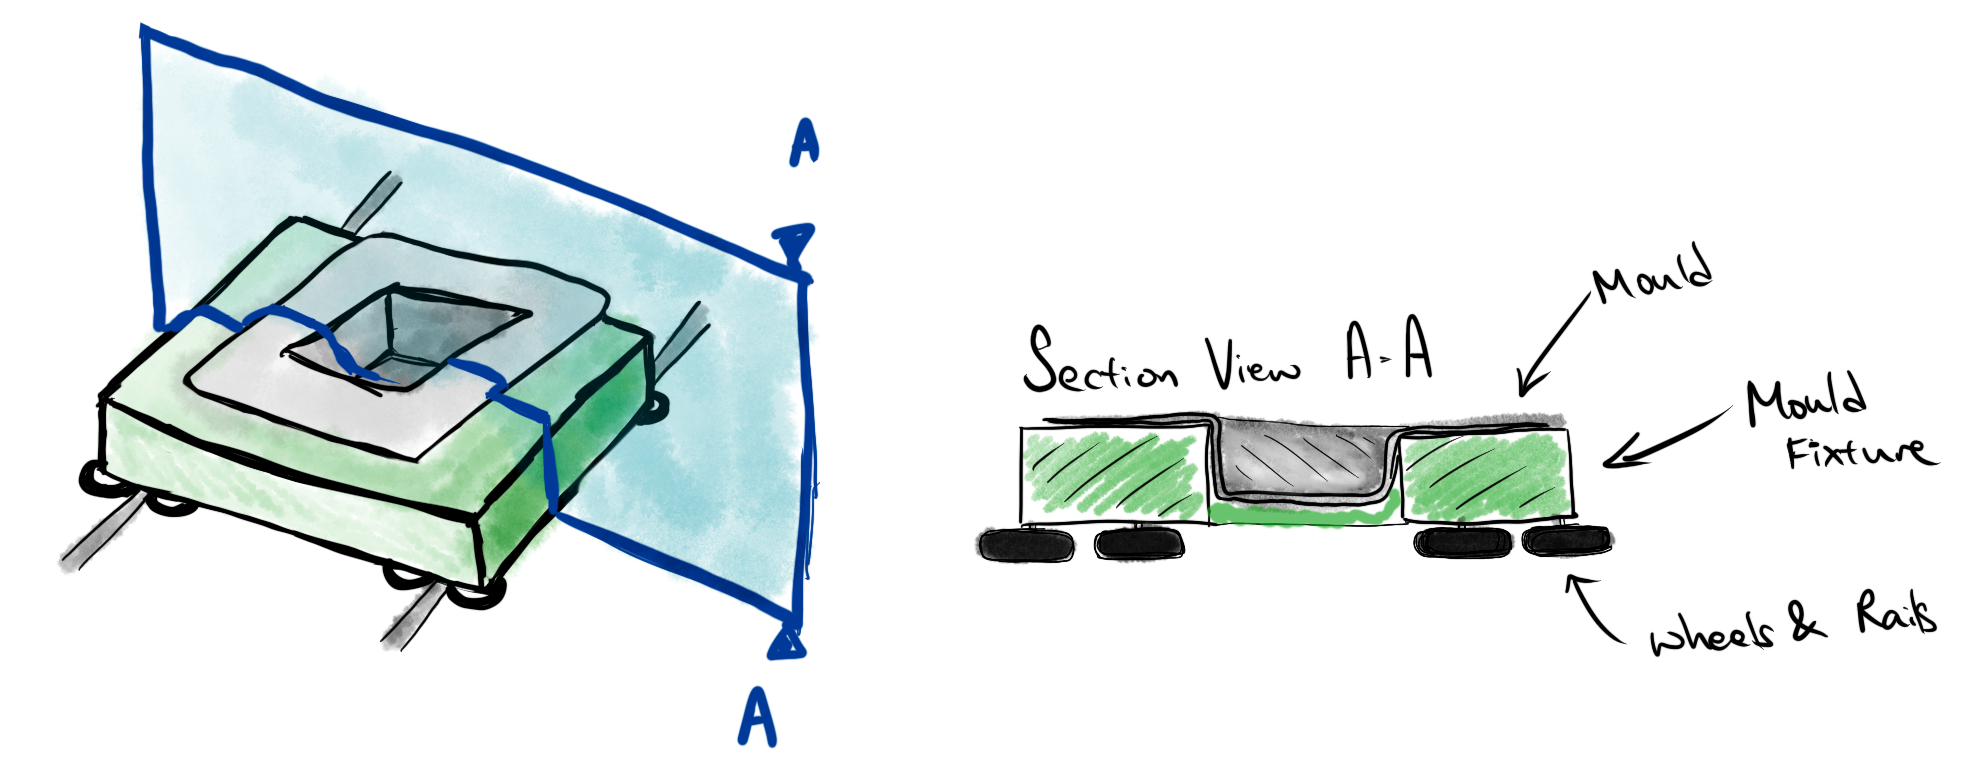 A
A
Section View A-A
Mould
Mould
Fixture
Wheels & Rails